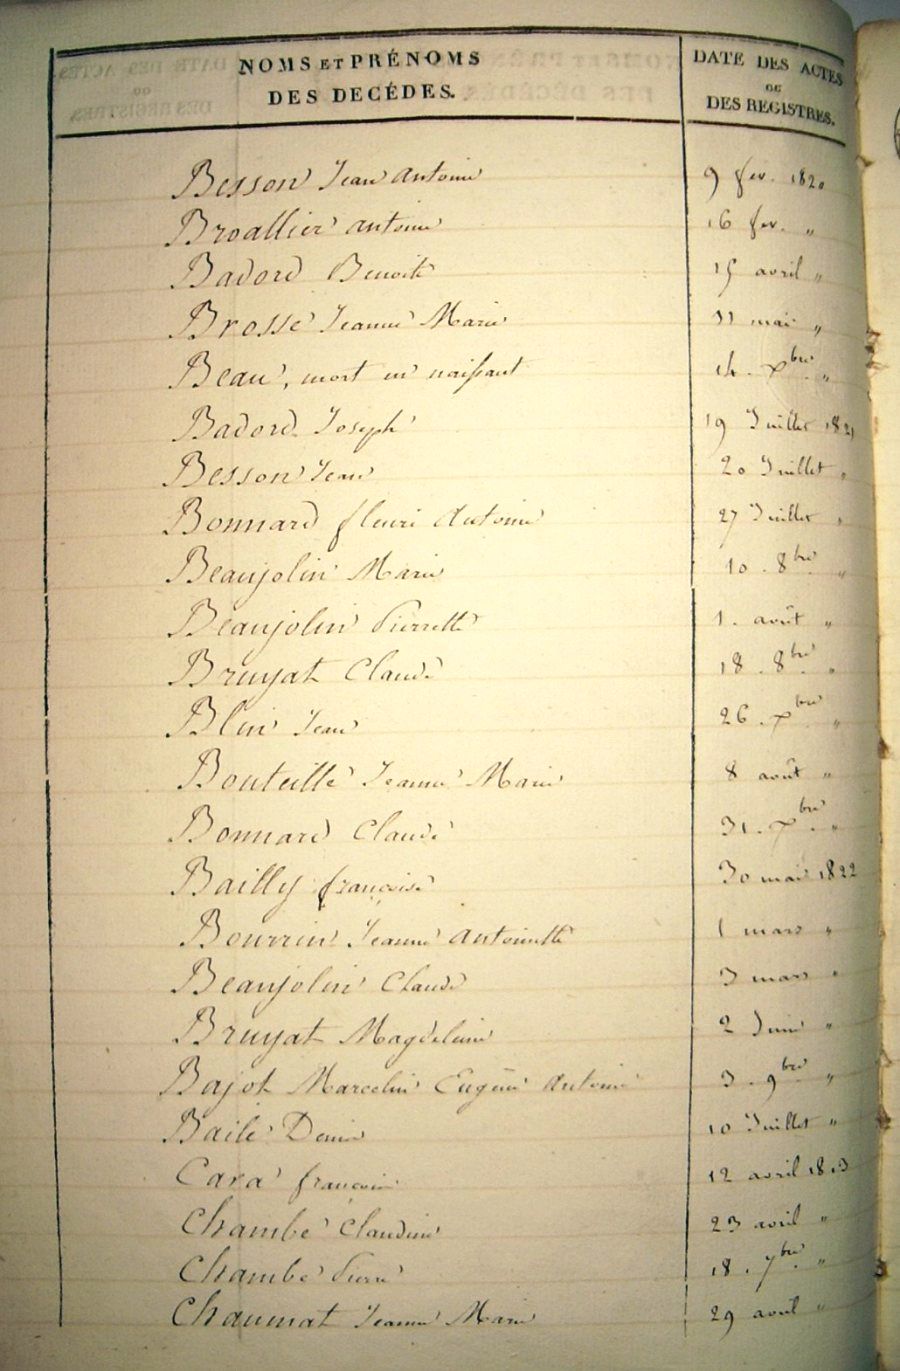 NOMS ET PRÉNOMS
DES DECÉDES.
DATE DES ACTES
OU
DES REGISTRES.
Besson Jean Antoine 9 fev. 1820
Broallier antoine 16 fev. "
Badord Benoit 15 avril "
Brosse Jeanne Marie 11 mai "
Beau, mort en naissant 14. xbre "
Badord Joseph 19 Juillet 1821
Besson Jean 20 Juillet "
Bonnard fleuri Antoine 27 Juillet "
Beaujolin Marie 10. 8bre "
Beaujolin Pierrette 1. août "
Bruyat Claude 18. 8bre "
Blin Jean 26. xbre "
Bouteille Jeanne Marie 8 août "
Bonnard Claude 31. xbre "
Bailly françoise 30 mai 1822
Bourrin Jeanne antoinette 1 mars "
Beaujolin Claude 3 mars "
Bruyat Magdeleine 2 Juin "
Bajot Marcelin Eugène Antoine 3. 9bre "
Baile Denis 10 Juillet "
Cara françois 12 avril 1813
Chambe Claudine 23 avril "
Chambe Pierre 18. 7bre "
Chaumat Jeanne Marie 29 avril "